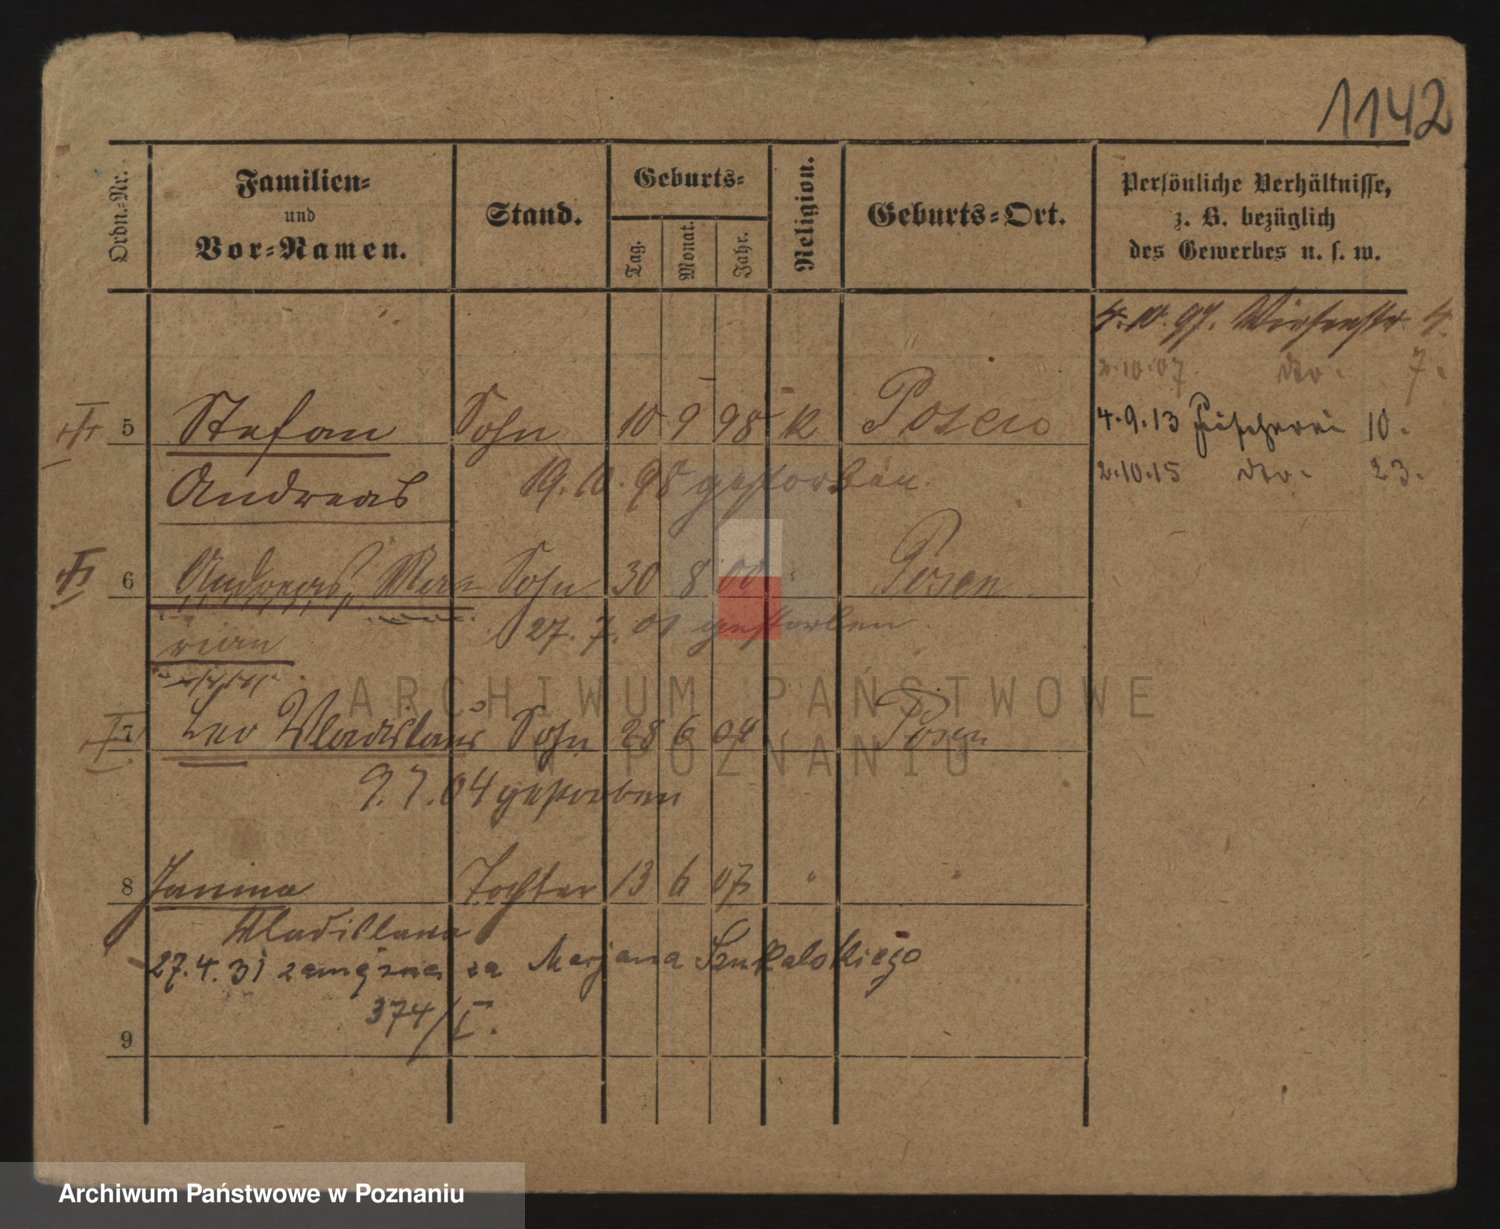 1142
Ordn.-Nr.
Familien-
und
Vor-Namen.
Stand.
Geburts-
Tag.
Monat.
Jahr.
Religion.
Geburts-Ort.
Persönliche Verhältnisse,
z. B. bezüglich
des Gewerbes u. s. w.
4.10.97. Wiesenstr. 4.
2.10.07 do. 7.
4.9.13 Fischerei 10.
2.10.15 do. 23.
5 Stefan Sohn 10 9 98 K Posen
Andreas 19.10.98 gestorben.
6 Andreas, Ma- Sohn 30 8 00 " Posen
rian 27.7.01 gestorben
ARCHIWUM PAŃSTWOWE
W POZNANIU
7 Leo Wladislaus Sohn 28 6 04 Posen
9.7.04 gestorben
8 Janina Tochter 13 6 07 " "
Wladislawa
27.4.31 zamężna za Marjana Szukalskiego
374/I.
9
Archiwum Państwowe w Poznaniu